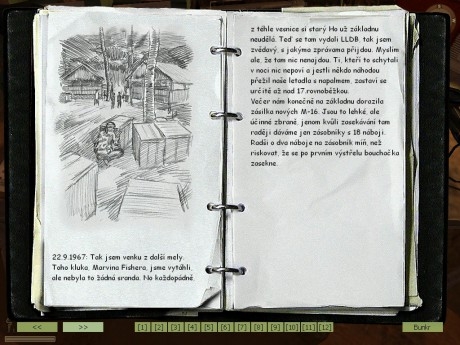 22.9.1967: Tak jsem venku z další mely.
Toho kluka, Marvina Fishera, jsme vytáhli,
ale nebyla to žádná sranda. No každopádně
z táhle vesnice si starý Ho už základnu
neudělá. Teď se tam vydali LLDB, tak jsem
zvědavý, s jakýma zprávama přijdou. Myslím
ale, že tam nic nenajdou. Ti, kteří to schytali
v noci nic nepoví a jestli někdo náhodou
přežil naše letadla s napalmem, zastaví se
určitě až nad 17.rovnoběžkou.
Večer nám konečně na základnu dorazila
zásilka nových M-16. Jsou to lehké, ale
účinné zbraně, jenom kvůli zasekávání tam
raděj dáváme jen zásobníky s 18 náboji.
Radši o dva náboje na zásobník míň, než
riskovat, že se po prvním výstřelu bouchačka
zasekne.
<< >> [1] [2] [3] [4] [5] [6] [7] [8] [9] [10] [11] [12] Bunkr